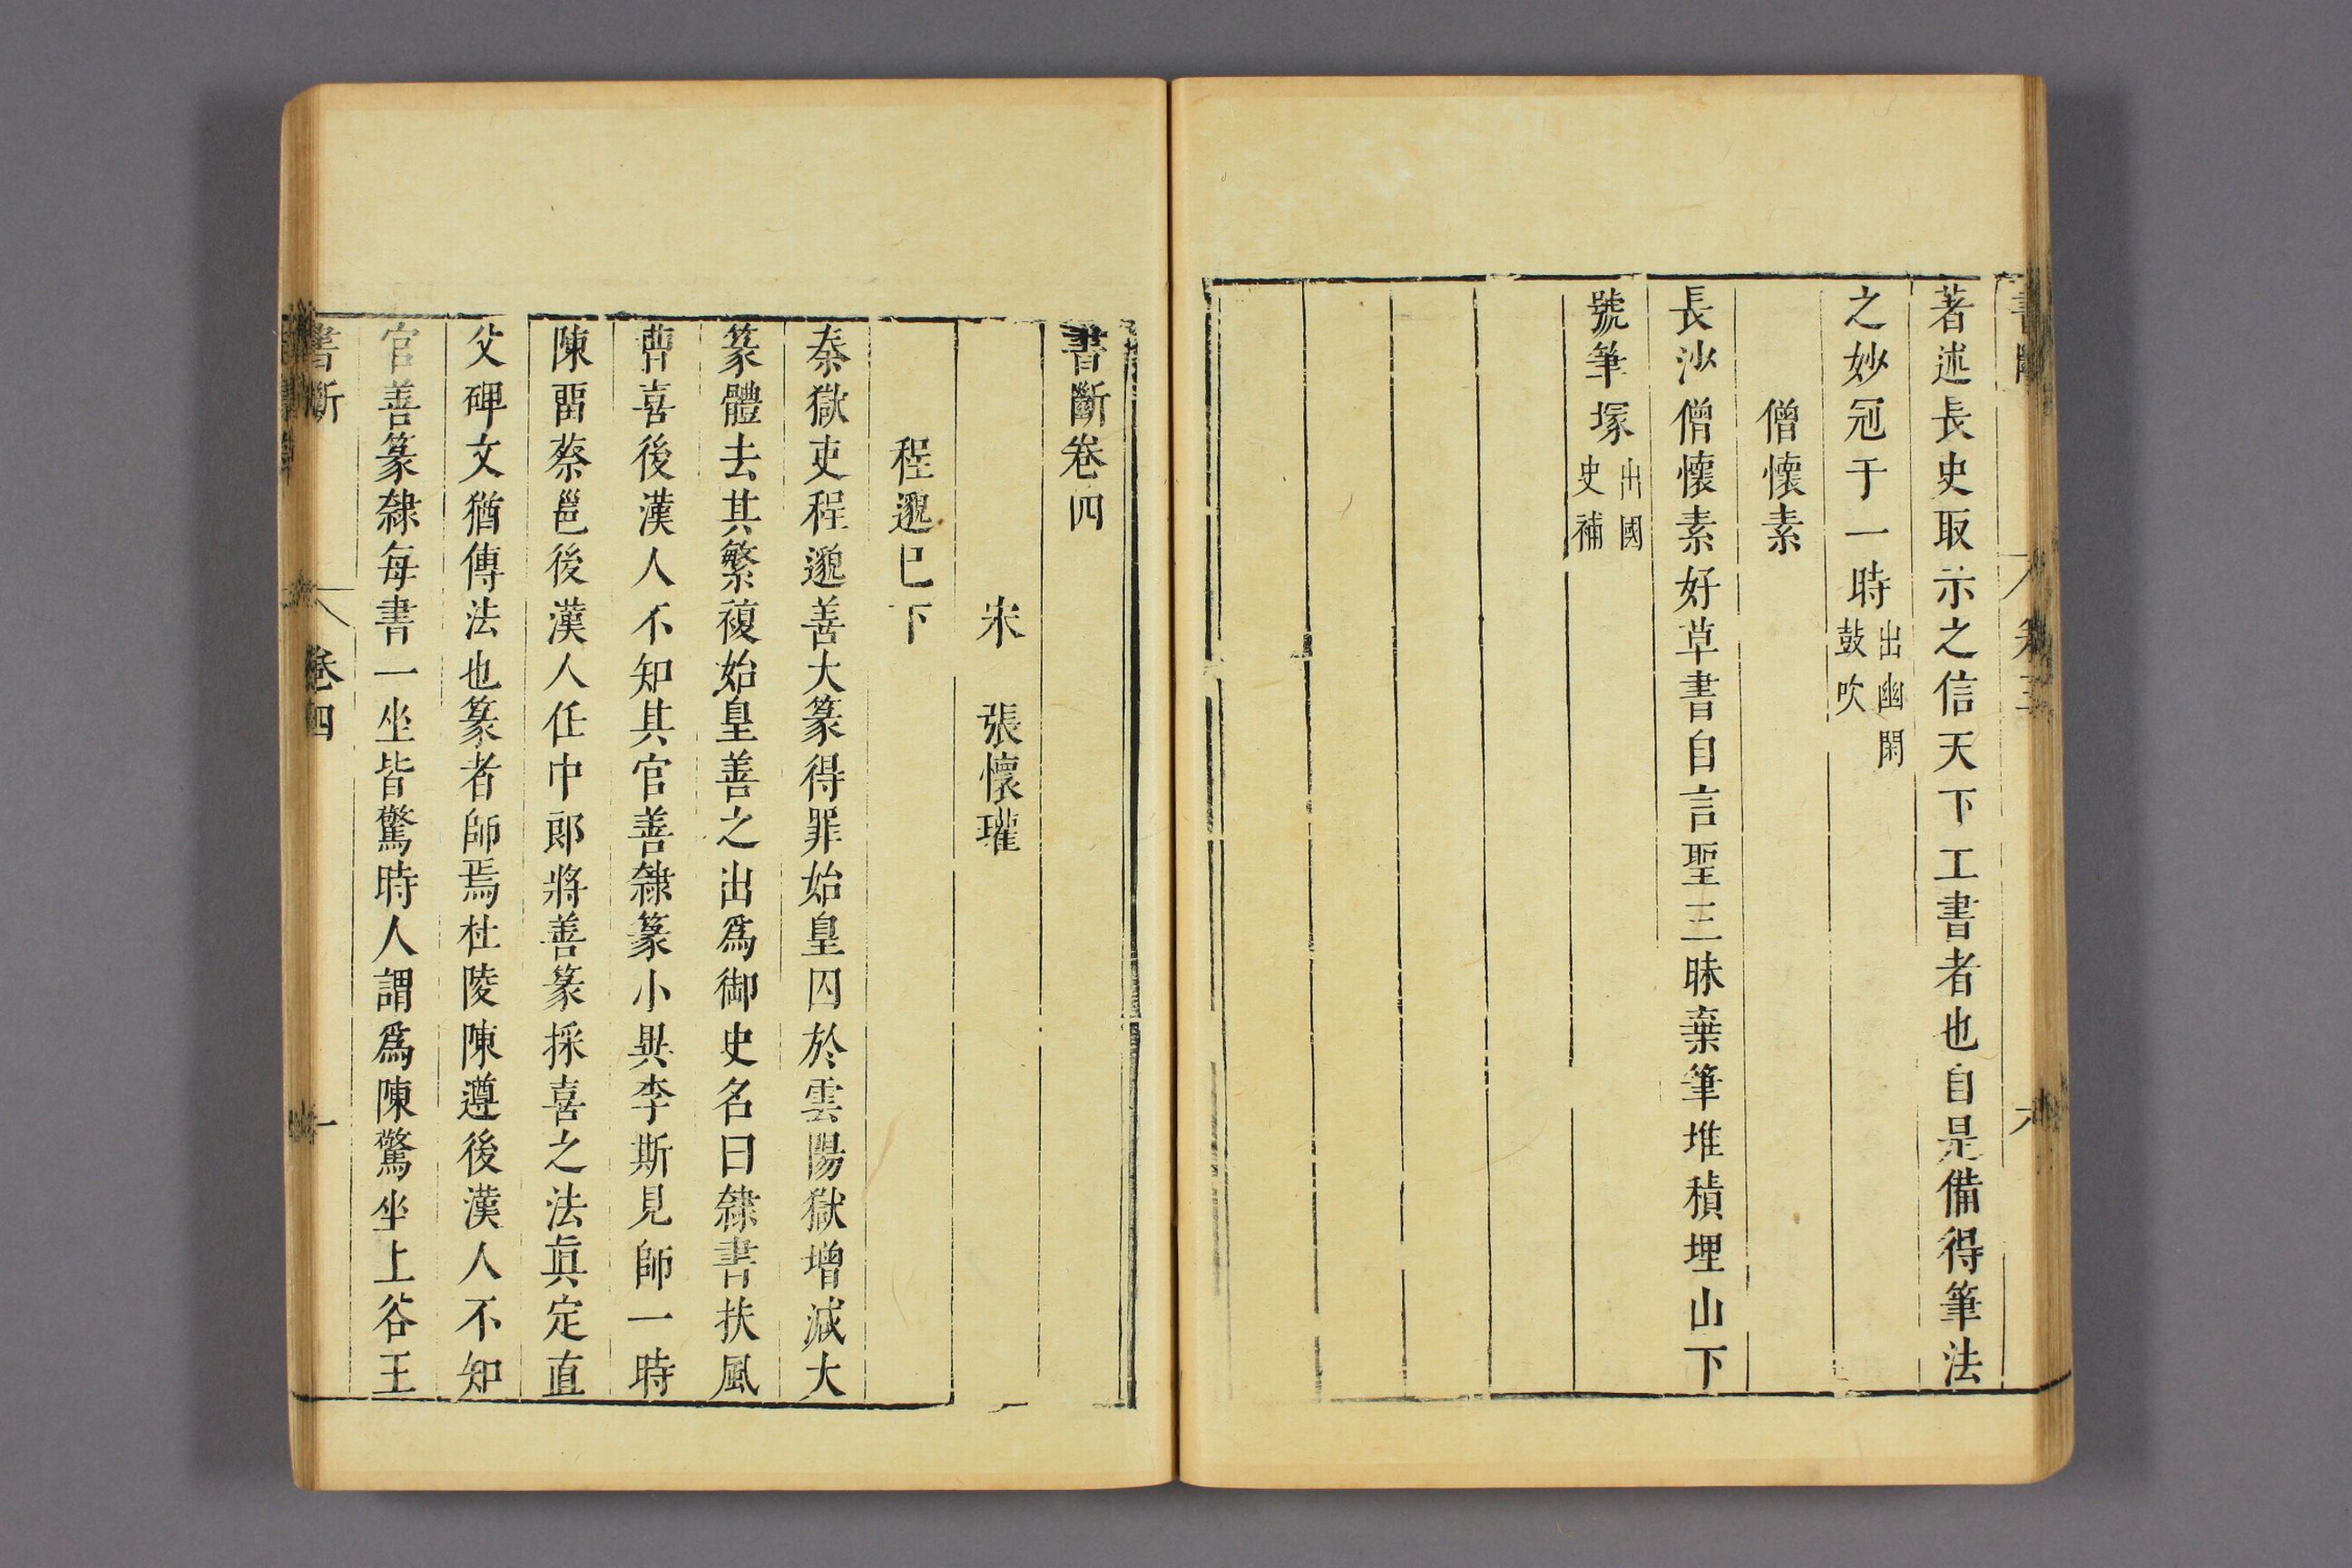 書斷
卷三
六
著述長史取示之信天下工書者也自是備得筆法
之妙冠于一時出幽閑鼓吹
僧懷素
長沙僧懷素好草書自言聖三昧棄筆堆積埋山下
號筆塚出國史補
書斷卷四
宋 張懷瓘
程邈已下
秦獄吏程邈善大篆得罪始皇囚於雲陽獄增減大
篆體去其繁複始皇善之出爲御史名曰隸書扶風
曹喜後漢人不知其官善隸篆小異李斯見師一時
陳留蔡邕後漢人任中郎將善篆採喜之法眞定直
父碑文猶傳法也篆者師焉杜陵陳遵後漢人不知
官善篆隸每書一坐皆驚時人謂爲陳驚坐上谷王
書斷
卷四
一